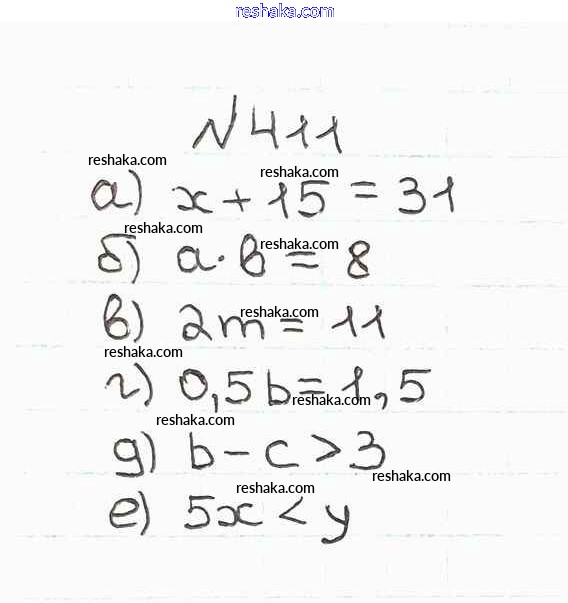 reshaka.com
№411
reshaka.com
reshaka.com
а) x + 15 = 31
reshaka.com
reshaka.com
б) a · b = 8
reshaka.com
в) 2m = 11
reshaka.com
г) 0,5b = 1,5
reshaka.com
reshaka.com
д) b - c > 3
reshaka.com
reshaka.com
е) 5x < y
reshaka.com